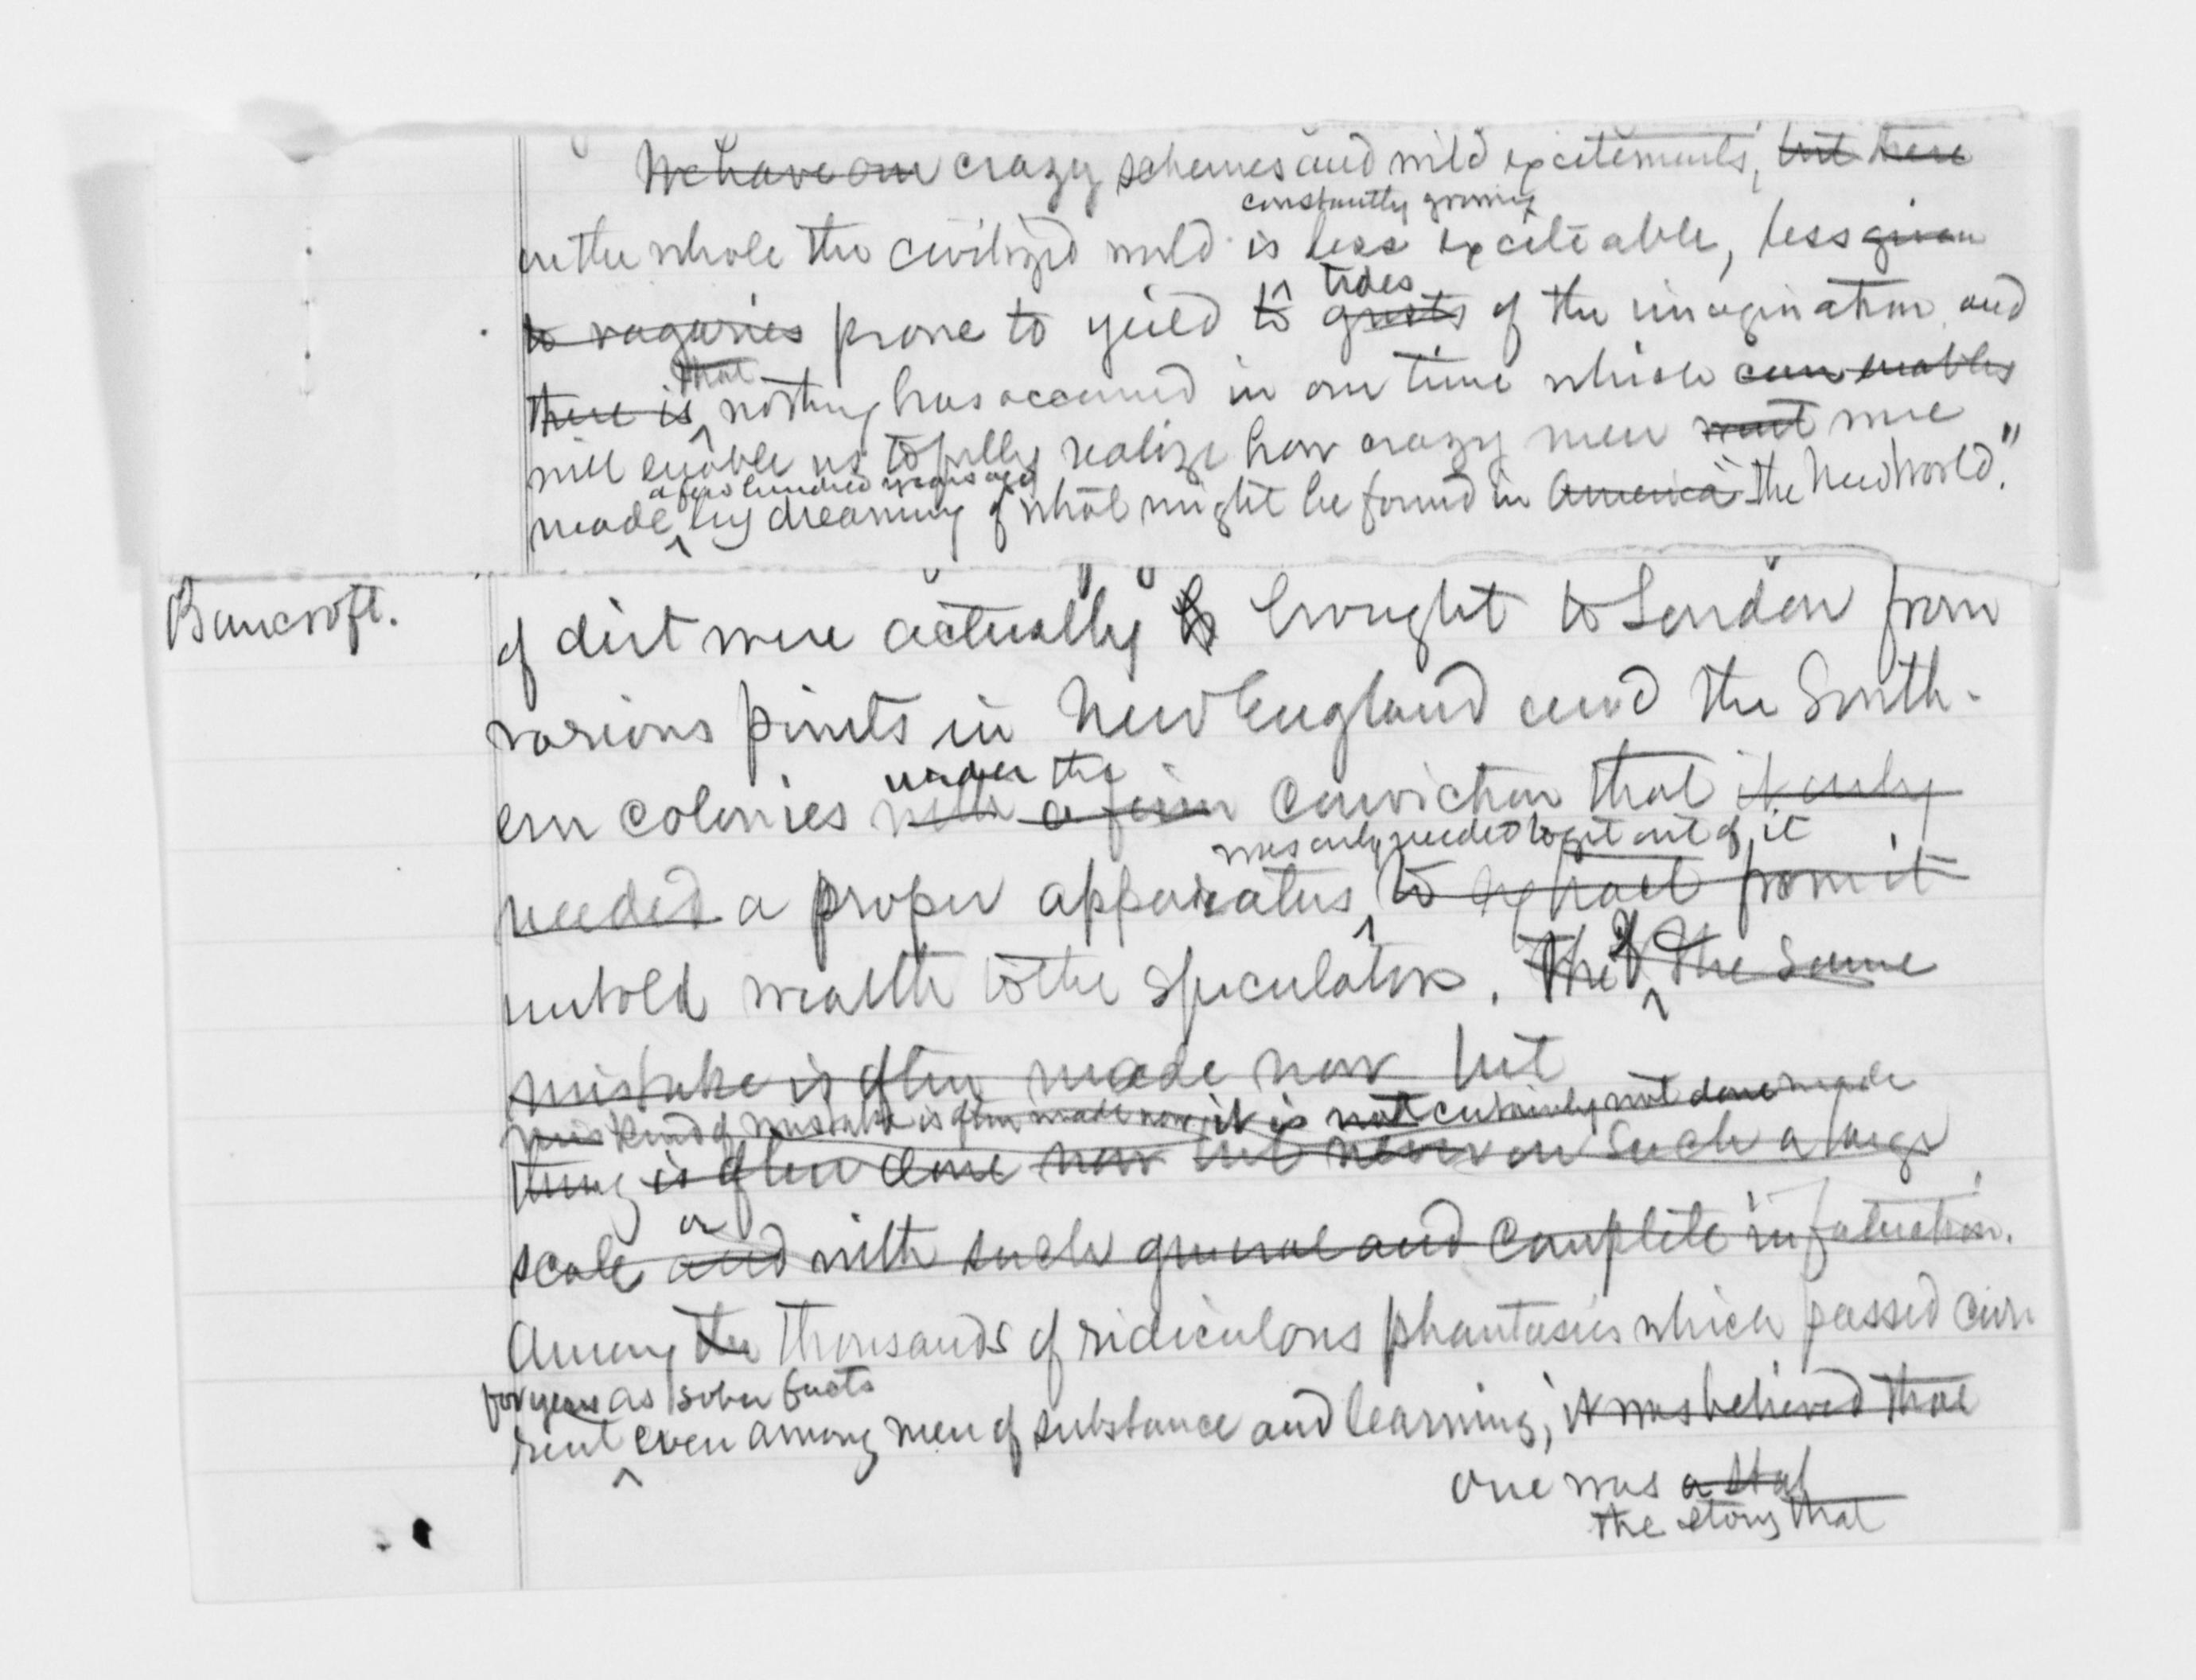 We have our crazy schemes and wild excitements, but there
constantly growing
on the whole the civilized world is less exciteable, less given
tides
to vagaries prone to yield to gusts of the imagination and
that
there is nothing has occurred in our time which can enables
will enable us to fully realize how crazy men went were
a few hundred years ago
made by dreaming of what might be found in America "the New World."
Bancroft.
of dirt were actually brought to London from
various points in New England and the South-
under the
ern colonies with a firm conviction that it only
was only needed to get out of it
needed a proper apparatus to extract from it
untold wealth to the speculators. The The same
mistake is often made now but
kind of mistake is often made now it is not certainly not done made
thing is often done now but never on such a large
or
scale and with such general and complete infatuation.
Among the thousands of ridiculous phantasies which passed cur
for years as sober facts
rent even among men of substance and learning, it was believed that
one was a
the story that